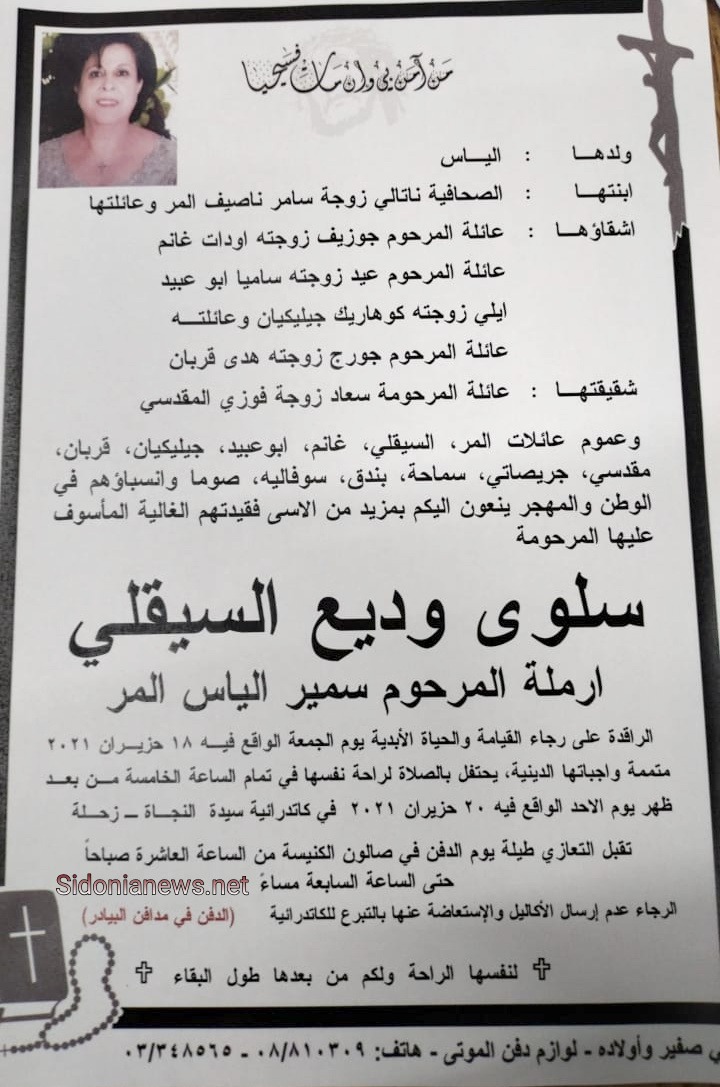 من آمن بي وان مات فسيحيا
ولدهـا : اليـــاس
ابنتهـا : الصحافية ناتالي زوجة سامر ناصيف المر وعائلتها
اشقاؤهـا : عائلة المرحوم جوزيف زوجته اودات غانم
عائلة المرحوم عيد زوجته ساميا ابو عبيد
ايلي زوجته كوهاريك جيليكيان وعائلتـــه
عائلة المرحوم جورج زوجته هدى قربان
شقيقتهـا : عائلة المرحومة سعاد زوجة فوزي المقدسي
وعموم عائلات المر، السيقلي، غانم، ابوعبيد، جيليكيان، قربان،
مقدسي، جريصاتي، سماحة، بندق، سوفاليه، صوما وانسباؤهم في
الوطن والمهجر ينعون اليكم بمزيد من الاسى فقيدتهم الغالية المأسوف
عليها المرحومة
سلوى وديع السيقلي
ارملة المرحوم سمير الياس المر
الراقدة على رجاء القيامة والحياة الأبدية يوم الجمعة الواقع فيــه ١٨ حزيــران ٢٠٢١
متممة واجباتها الدينية، يحتفل بالصلاة لراحة نفسها في تمام الساعة الخامسة مــن بعــد
ظهر يوم الاحد الواقع فيه ٢٠ حزيران ٢٠٢١ في كاتدرائية سيدة النجــاة ــ زحلــة
تقبل التعازي طيلة يوم الدفن في صالون الكنيسة من الساعة العاشرة صباحاً
حتى الساعة السابعة مساءً
Sidonianews.net
الرجاء عدم إرسال الأكاليل والإستعاضة عنها بالتبرع للكاتدرائية (الدفن في مدافن البيادر)
✞ لنفسها الراحة ولكم من بعدها طول البقاء ✞
صفير وأولاده - لوازم دفن الموتى - هاتف: ٠٨/٨١٠٣٠٩ - ٠٣/٣٤٨٥٦٥